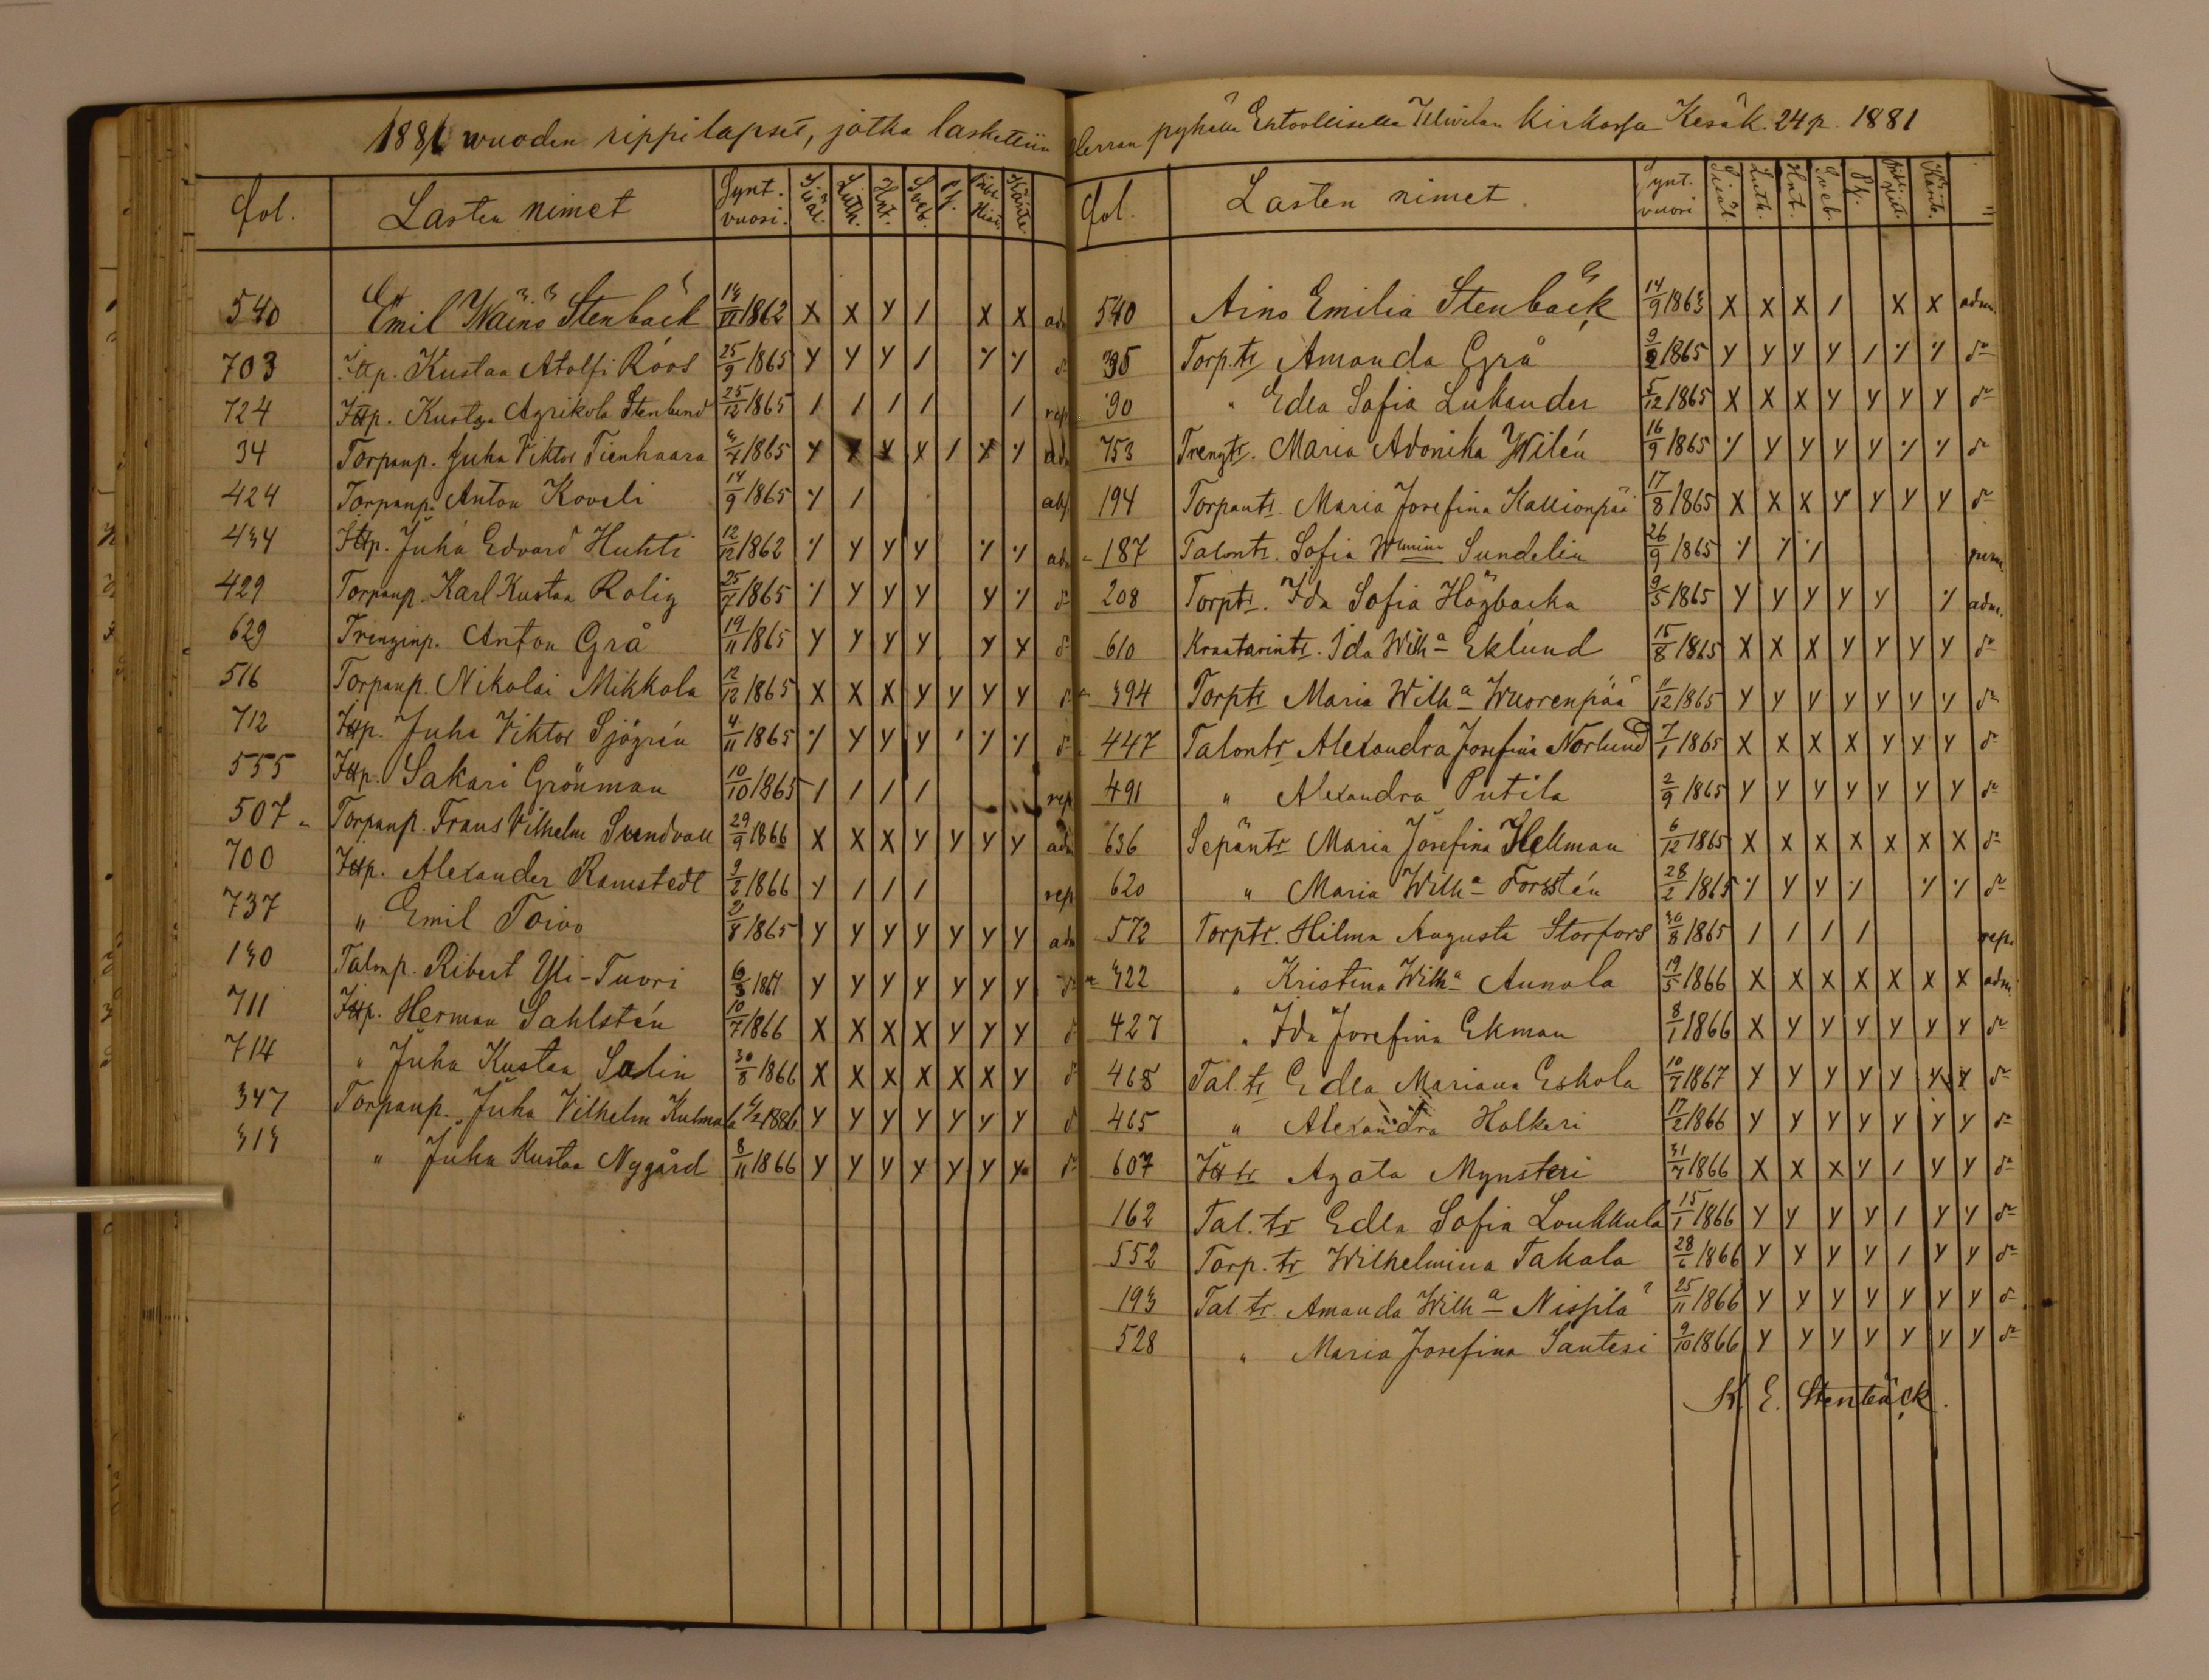 1881 wuoden rippilapset, jotka laskettiin Herran pyhälle Ehtoolliselle Ulvilan Kirkossa Kesäk. 24 p. 1881
fol. Lasten nimet Synt. vuosi. Sisäl. Luth. Hnt. Sveb. Pj. Bibl. Hist. Käsite.
540 Emil Wäinö Stenbäck 1862 X X Y / X X adm
703 Itp. Kustaa Atolfi Róos 25/9 1865 Y Y Y / Y Y d:o
724 Itp. Kustaa Agrikola Stenlund 25/12 1865 / / / / / rep
34 Torpanp. Juha Viktor Tienhaara 1865 Y X X X / X Y adm
424 Torpanp. Anton Koveli 14/9 1865 Y / abs.
434 Itp. Juha Edvard Huhti 12/12 1862 Y Y Y Y Y Y adm
429 Torpanp. Karl Kustaa Rolig 25/7 1865 Y Y Y Y Y Y d:o
629 Trenginp. Anton Grå 19/11 1865 Y Y Y Y Y Y d:o
516 Torpanp. Nikolai Mikkola 12/12 1865 X X X Y Y Y Y d:o
712 Itp. Juha Viktor Sjögrén 4/11 1865 Y Y Y Y ' Y Y d:o
555 Itp. Sakari Grönman 10/10 1865 / / / / rep
507 Torpanp. Frans Vilhelm Svendvall 29/9 1866 X X X Y Y Y Y adm
700 Itp. Alexander Ramstedt 9/2 1866 Y / / / rep
737 " Emil Toivo 1865 Y Y Y Y Y Y Y adm
130 Talonp. Ribert Yli-Tuori Y Y Y Y Y Y Y d:o
711 Itp. Herman Sahlstén 10/7 1866 X X X X Y Y Y d:o
714 " Juha Kustaa Salin 30/8 1866 X X X X X X Y d:o
347 Torpanp. Juha Vilhelm Kulmala Y Y Y Y Y Y Y d:o
313 " Juha Kustaa Nygård 8/11 1866 Y Y Y Y Y Y Y d:o
fol. Lasten nimet. Synt. vuosi Sisäl. Luth. Hnt. Sveb. Pj. Bibl. Hist. Käsite.
540 Aino Emilia Stenbäck 14/9 1863 X X X / X X adm.
395 Torp.tr Amanda Grå 1865 Y Y Y Y / Y Y d:o
90 " Edla Sofia Lukander 5/12 1865 X X X Y Y Y Y d:o
753 Trengtr. Maria Adonika Wilén 16/9 1865 Y Y Y Y Y Y Y d:o
194 Torpantr. Maria Josefina Kallionpää 17/8 1865 X X X Y Y Y Y d:o
187 Talontr. Sofia Wmina Sundelin 26/9 1865 Y Y Y
208 Torptr. Ida Sofia Högbacka 9/5 1865 Y Y Y Y Y Y adm.
610 Kraatarintr. Ida Wilh:a Eklund 15/8 1865 X X X Y Y Y Y d:o
394 Torptr Maria Wilh:a Wuorenpää 11/12 1865 Y Y Y Y Y Y Y d:o
447 Talontr Alexandra Josefina Norlund 7/1 1865 X X X X Y Y Y d:o
491 " Alexandra Putila 2/9 1865 Y Y Y Y Y Y Y d:o
636 Sepäntr Maria Josefina Hellman 6/12 1865 X X X X X X X d:o
620 " Maria Wilh:a Forsstén 28/2 1865 Y Y Y Y Y Y d:o
572 Torptr. Hilma Augusta Storfors 30/8 1865 / / / / rep.
322 " Kristina Wilh:a Aunola 19/5 1866 X X X X X X X adm.
427 " Ida Josefina Ekman 8/1 1866 X Y Y Y Y Y Y d:o
468 Tal.tr Edla Mariana Eskola 10/7 1867 Y Y Y Y Y Y Y d:o
465 " Alexandra Halkeri 12/2 1866 Y Y Y Y Y Y Y d:o
607 Ittr Agata Mynsteri 31/7 1866 X X X Y / Y Y d:o
162 Tal.tr Edla Sofia Loukkula 15/1 1866 Y Y Y Y / Y Y d:o
552 Torp.tr Wilhelmina Takala 28/6 1866 Y Y Y Y / Y Y d:o
193 Tal.tr. Amanda Wilh:a Nissilä 25/11 1866 Y Y Y Y Y Y Y d:o
528 " Maria Josefina Santesi 9/10 1866 Y Y Y Y Y Y Y d:o
K. E. Stenbäck.